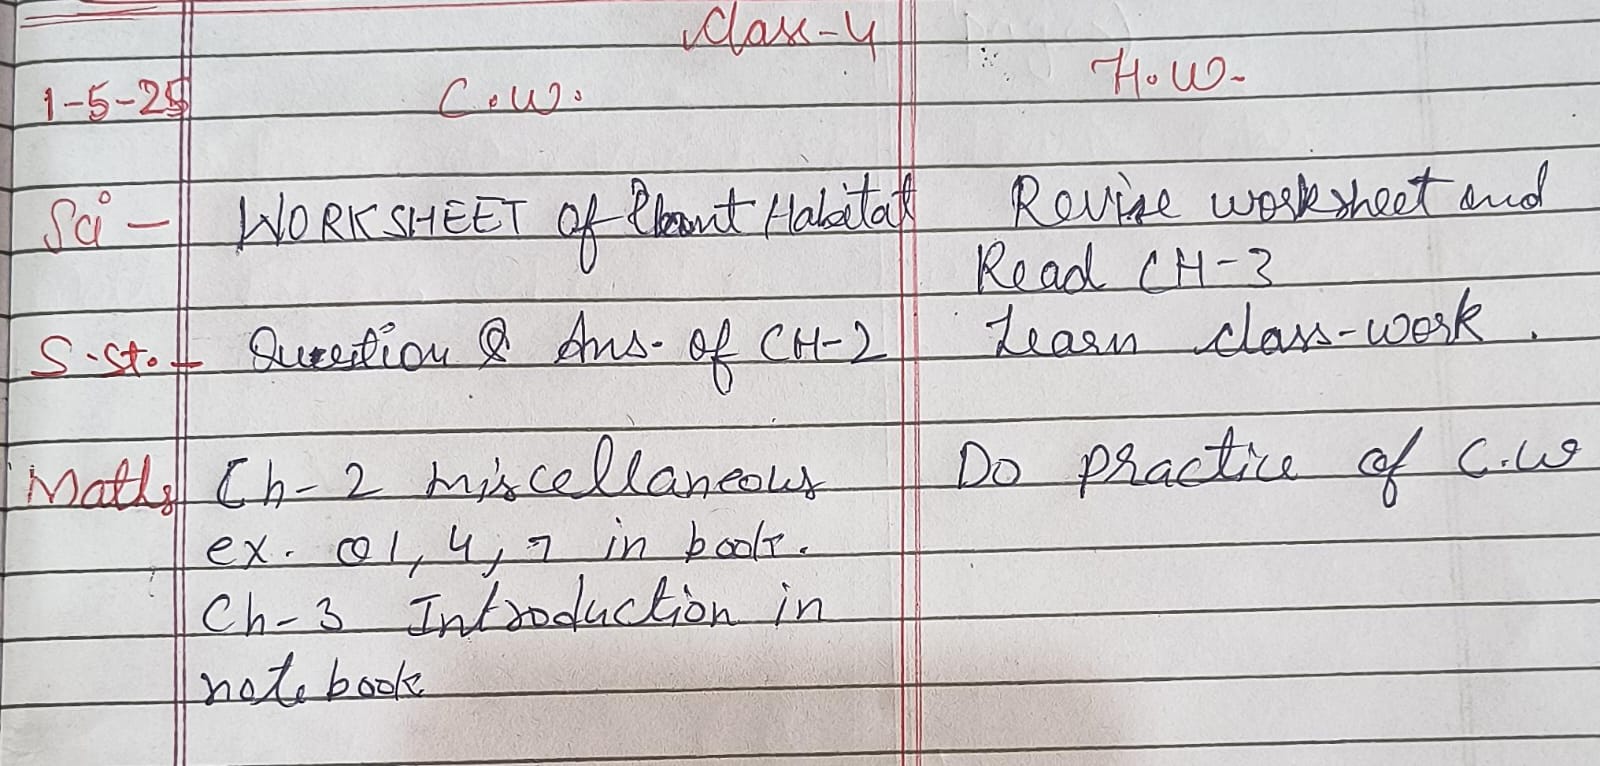 Class-4
1-5-25 C.W. H.W.
Sci - WORKSHEET of Plant Habitat Revise worksheet and
Read CH-3
S.St. - Question & Ans. of CH-2 Learn class-work.
Maths Ch-2 miscellaneous Do practice of C.W
ex. Q1, 4, 7 in book.
Ch-3 Introduction in
notebook